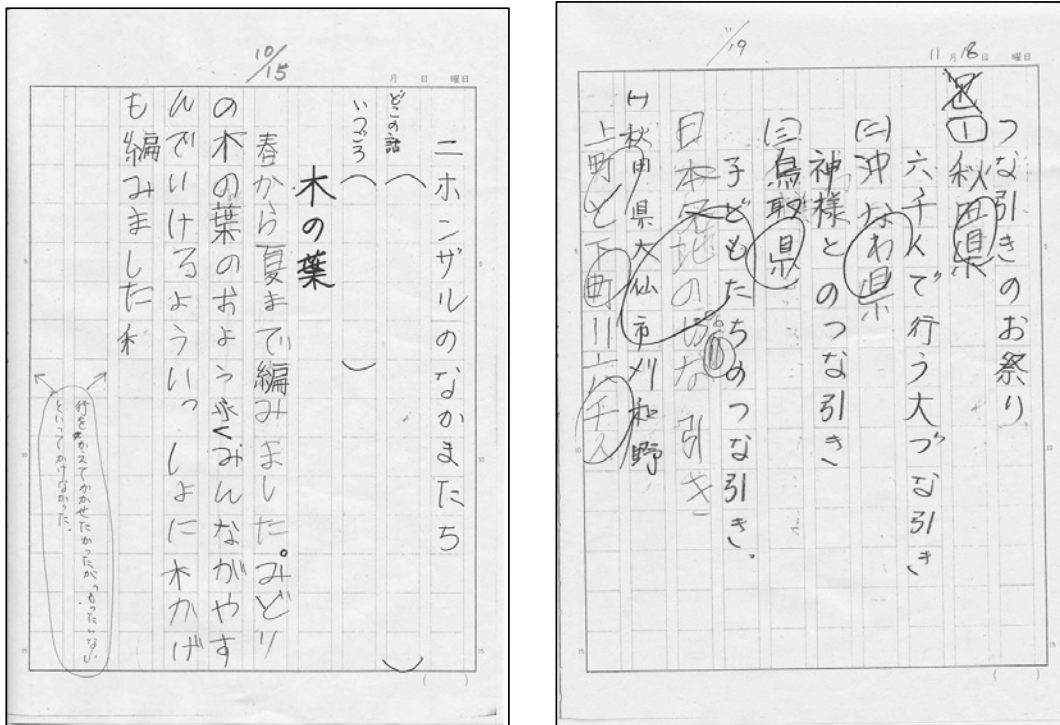 10/15
月 日 曜日
ニホンザルのなかまたち
どこの話( )
いつごろ( )
木の葉
春から夏まで編みました。みどり
の木の葉のおようふくみんながやす
んでいけるよういっしょに木かげ
も編みました
行をかえてかかせたかったが、「もったいない」
といってかけなかった。
11/19
11月18日 曜日
つな引きのお祭り
(一)秋田県
六千人で行う大づな引き
(二)沖なわ県
神様とのつな引き
(三)鳥取県
子どもたちのつな引き。
日本各地のつな引き
(一)秋田県大仙市刈和野
上町と下町 六千人